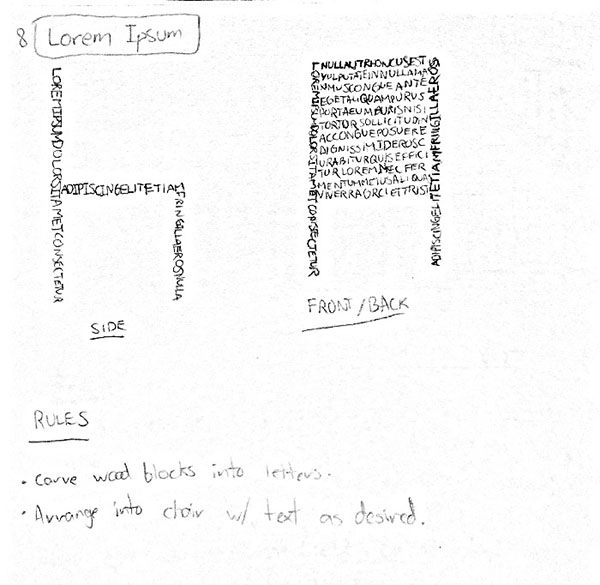 8 Lorem Ipsum
LOREMIPSUMDOLORSITAMETCONSECTETUR
ADIPISCINGELITETIAM
FRINGILLAEROSINULLA
SIDE
LOREMIPSUMDOLORSITAMETCONSECTETUR
NULLAUTRHONCUSEST
VULPUTATEINNULLAMA
XIMUSCONGUEANTE
EGETALIQUAMPURUS
PORTAEUMPURISNISI
TORTORSOLLICITUDIN
ACCONGUEPOSUERE
DIGNISSIMIDEROSC
URABITURQUISEFFICI
TURLOREMNECFER
MENTUMMETUSALIQUA
VIVERRAORCIETTRISTI
ADIPISCINGELITETIAMFRINGILLAEROS
FRONT/BACK
RULES
· Carve wood blocks into letters.
· Arrange into chair w/ text as desired.